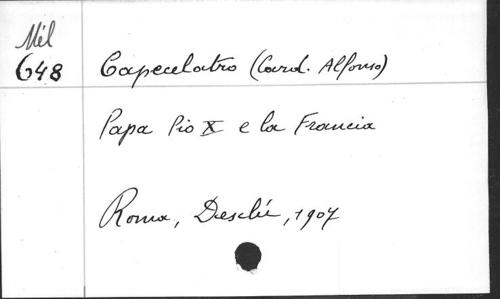 Mél
648
Capecelatro (Card. Alfonso)
Papa Pio X e la Francia
Roma, Desclée, 1907